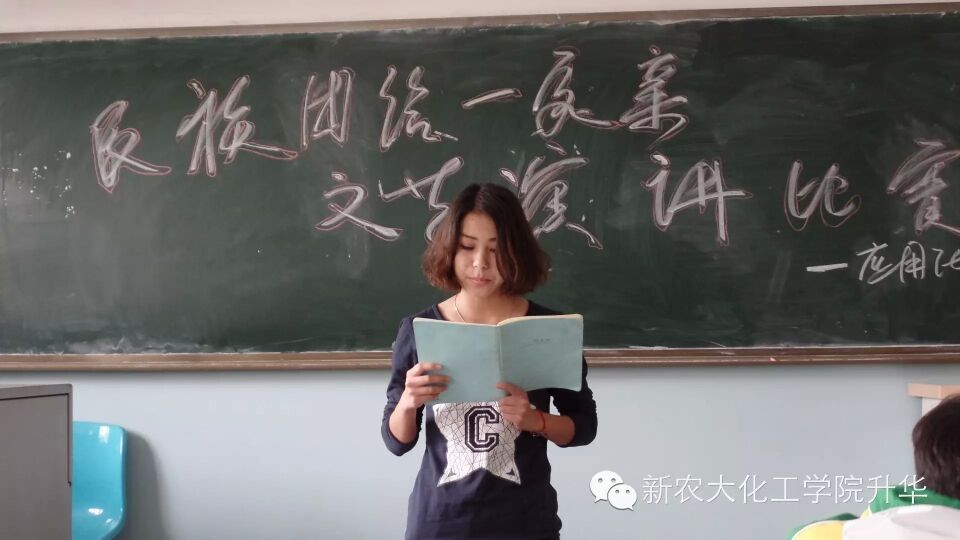 民族团结一家亲
文艺演讲比赛
一应用化
C
新农大化工学院升华